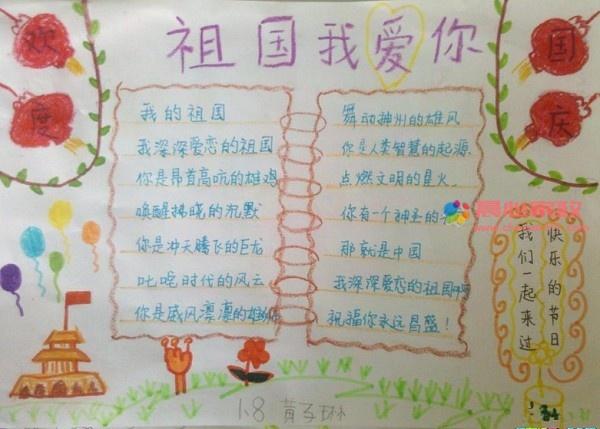 祖国我爱你
欢度
国庆
我的祖国
我深深爱恋的祖国
你是昂首高吭的雄鸡
唤醒拂晓的沉默
你是冲天腾飞的巨龙
叱咤时代的风云
你是威风凛凛的雄狮
舞动神州的雄风
你是人类智慧的起源
点燃文明的星火
你有一个神圣的
那就是中国
我深深爱恋的祖国啊
祝福你永远昌盛!
快乐的节日
我们一起来过
1.8 黄子琳